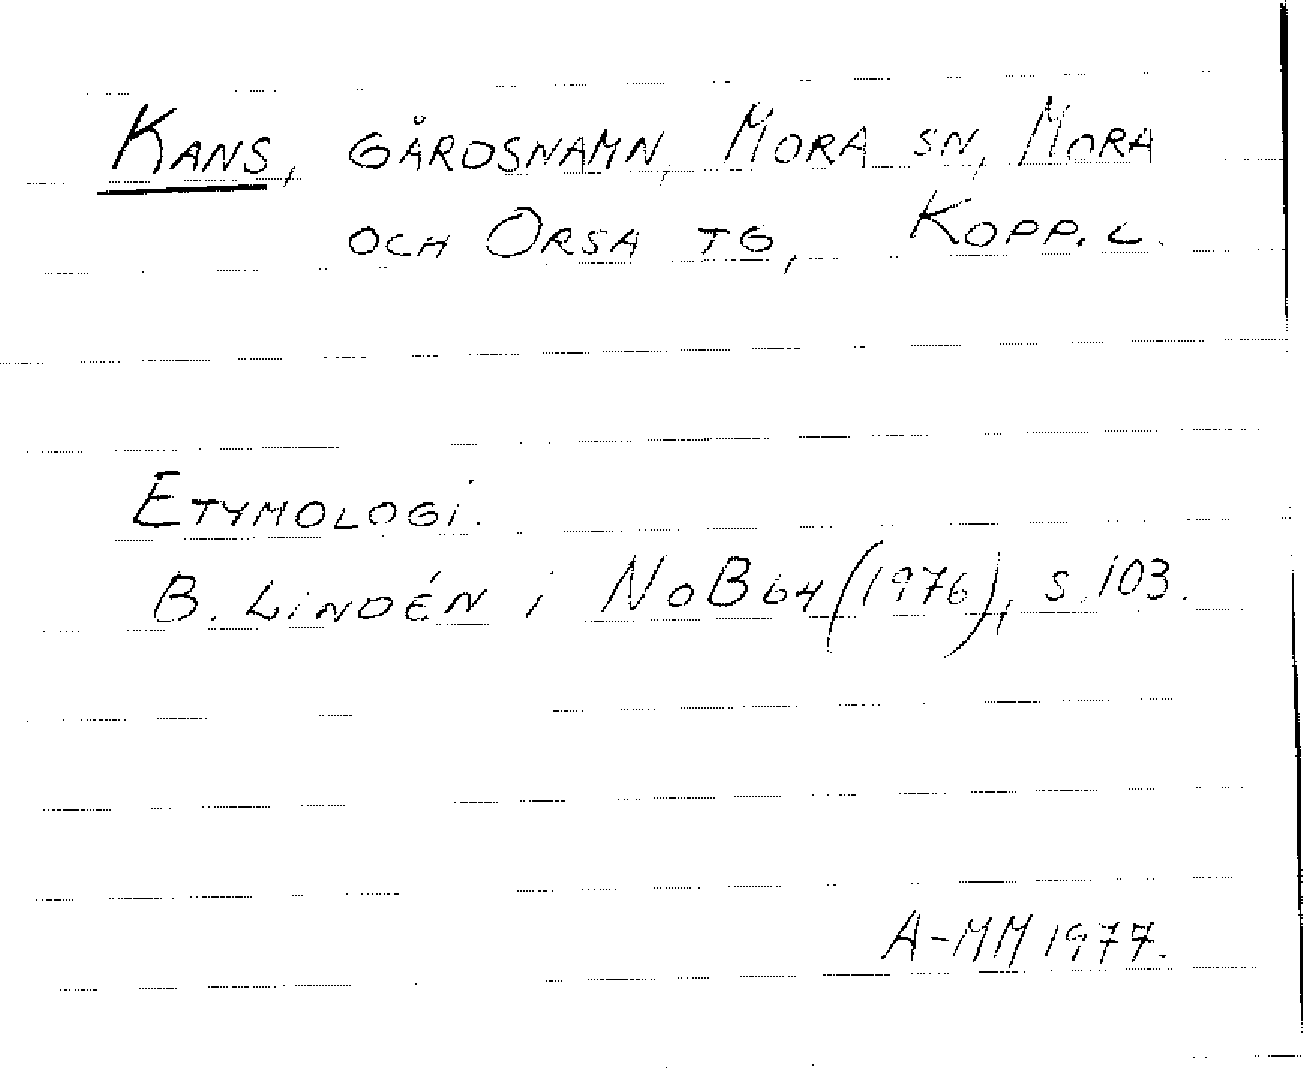 Kans, gårdsnamn, Mora sn, Mora
och Orsa tg, Kopp. l.
Etymologi.
B. Lindén i NoB 64 (1976), s. 103.
A-MM 1977.